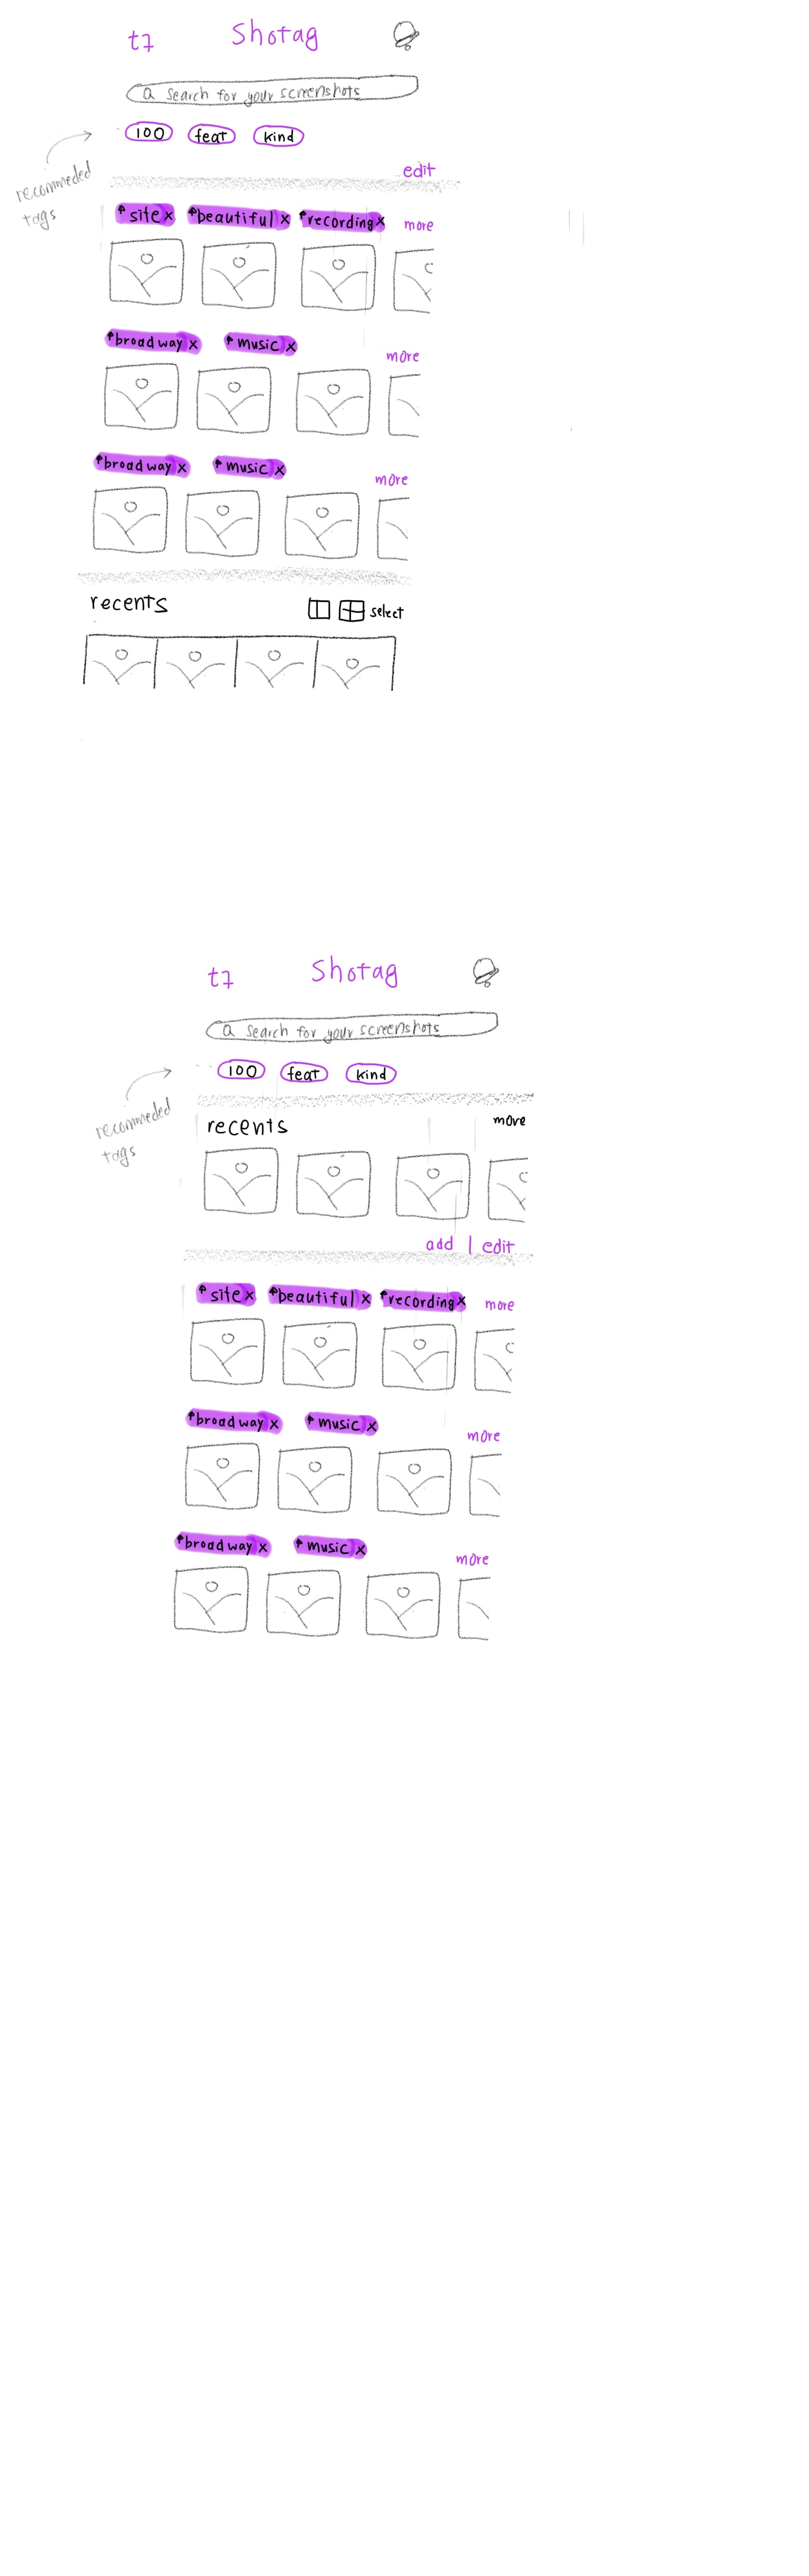 t7 Shotag
Search for your screenshots
100 feat kind
recommeded
tags
edit
site x beautiful x recording x more
broadway x music x
more
broadway x music x
more
recents
select
t7 Shotag
Search for your screenshots
100 feat kind
recommeded
tags
recents more
add | edit
site x beautiful x recording x more
broadway x music x
more
broadway x music x
more